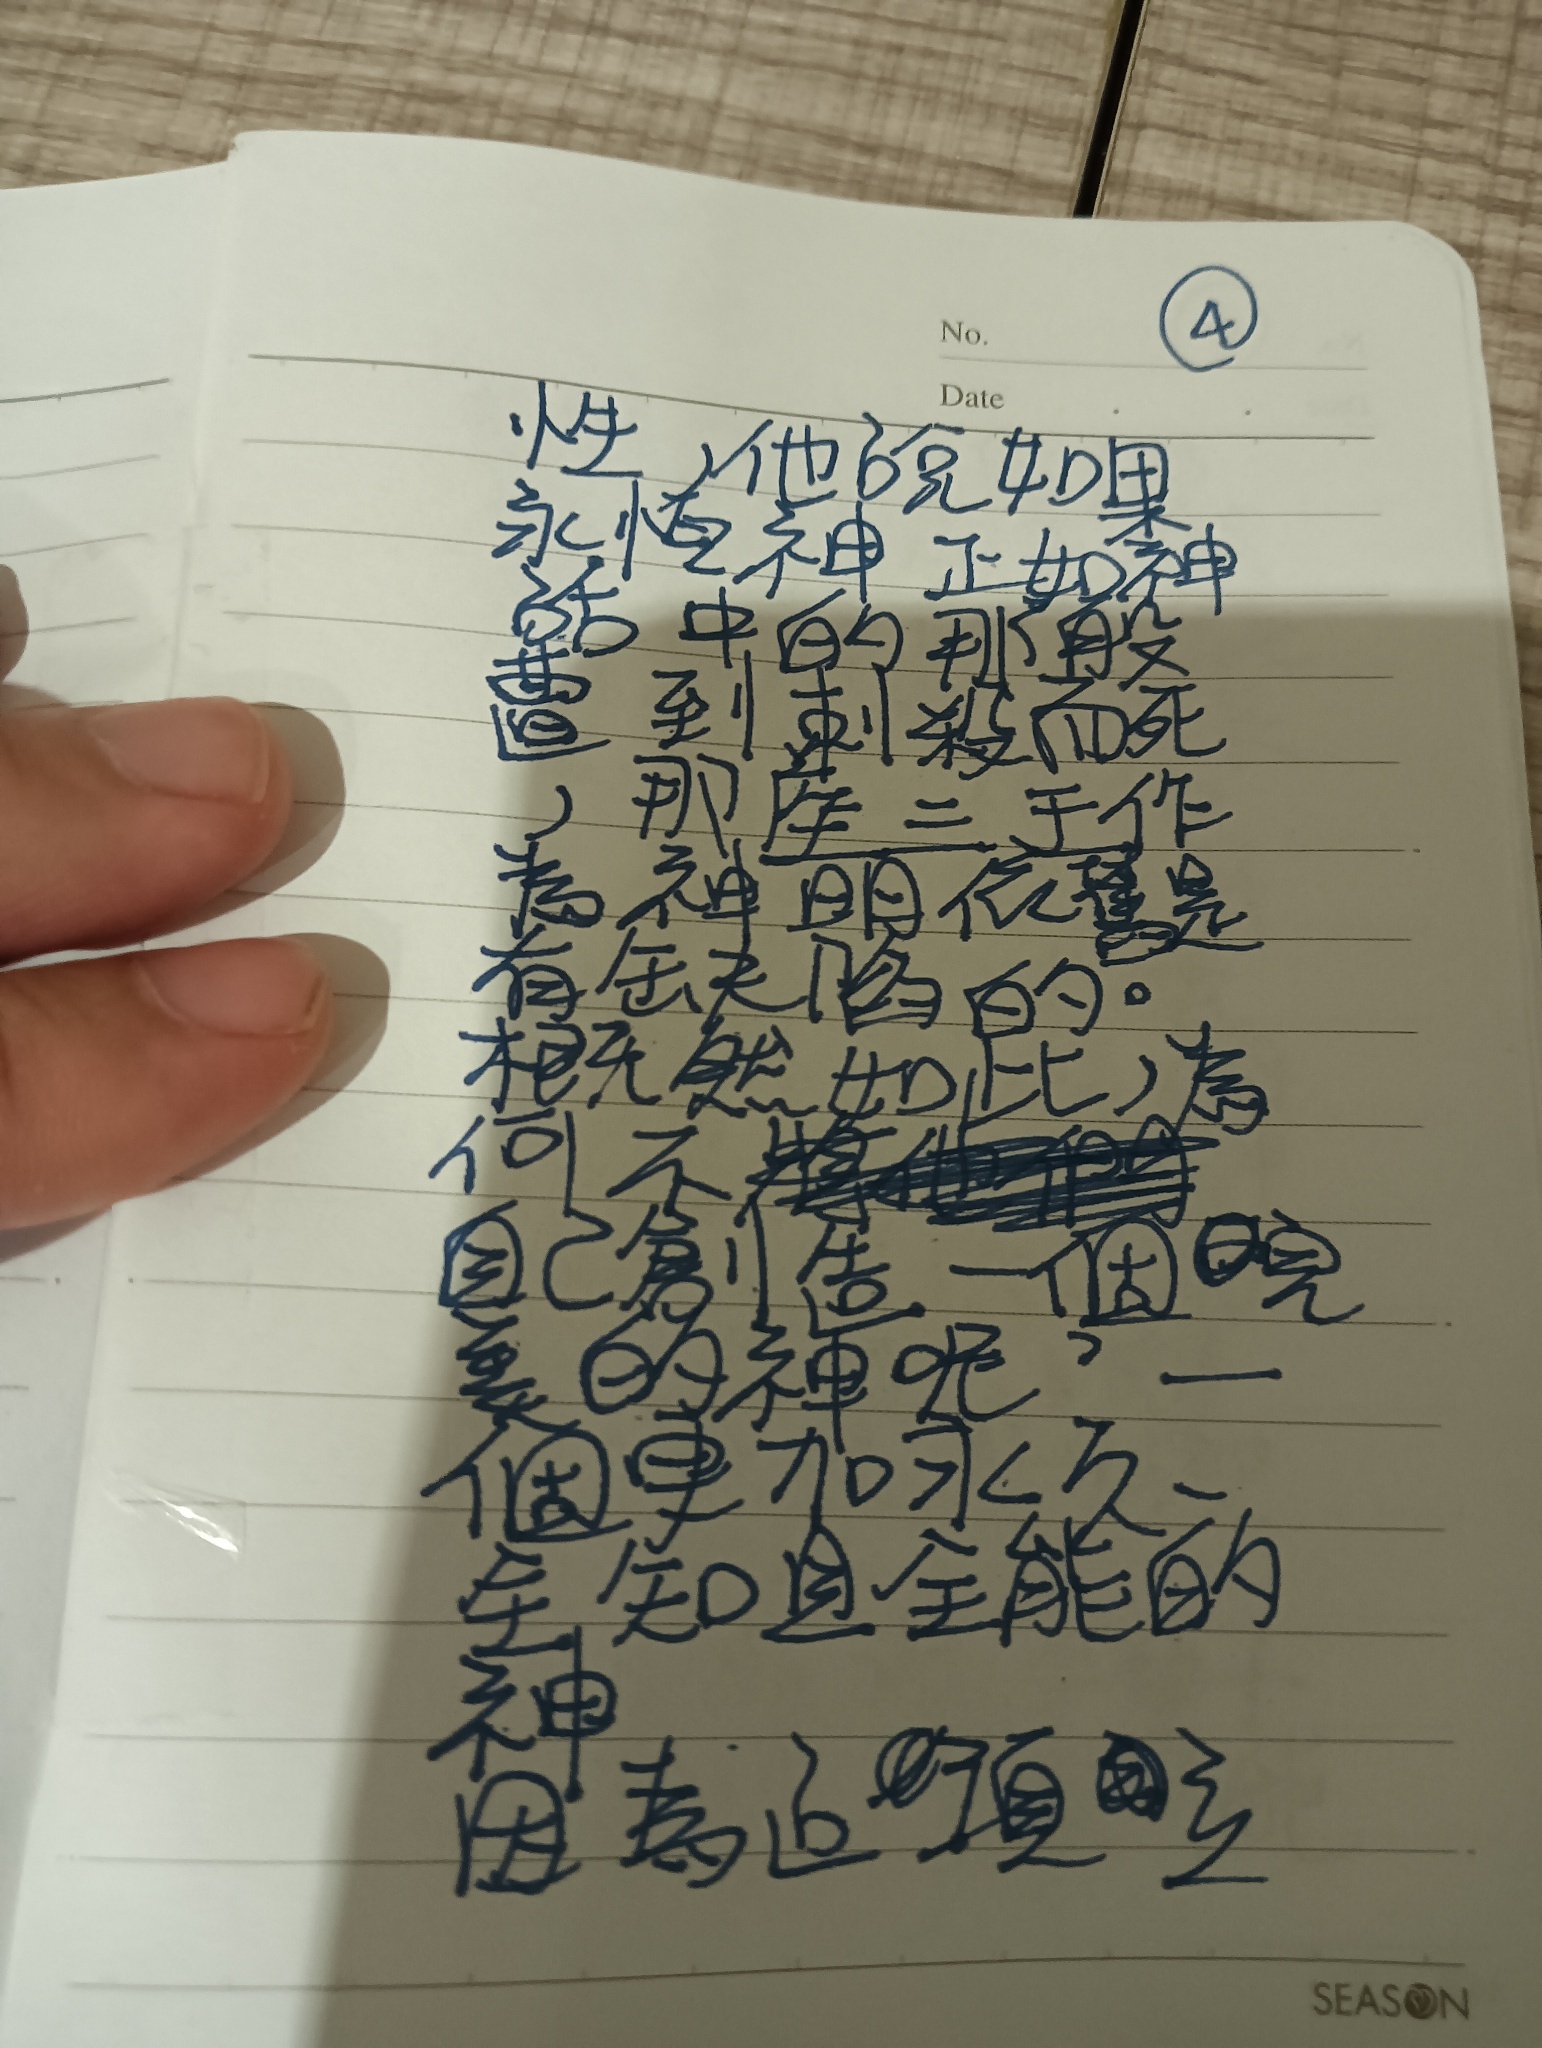 No. ④
Date
性,他說如果
永恆神正如神
話中的那般
遭到刺殺而死
,那座二于作
為神明依舊是
有缺陷的。
概然如此,為
何不
自己創造一個晚
的神呢?一
個更加永久、
全知且全能的
神
因為這項
SEASON